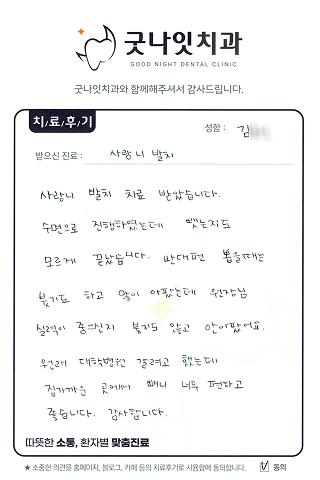 굿나잇치과
GOOD NIGHT DENTAL CLINIC
굿나잇치과와 함께해주셔서 감사드립니다.
치/료/후/기
성함 : 김
받으신 진료 : 사랑니 발치
사랑니 발치 치료 받았습니다.
수면으로 진행하였는데 뺏는지도
모르게 끝났습니다. 반대편 뽑을때는
붓기도 하고 많이 아팠는데 원장님
실력이 좋으신지 붓지도 않고 안아팠어요.
원래 대학병원 갈려고 했는데
집가까운 곳에서 빼니 너무 편하고
좋습니다. 감사합니다.
따뜻한 소통, 환자별 맞춤진료
★ 소중한 의견을 홈페이지, 블로그, 카페 등의 치료후기로 사용함에 동의합니다. ☑ 동의